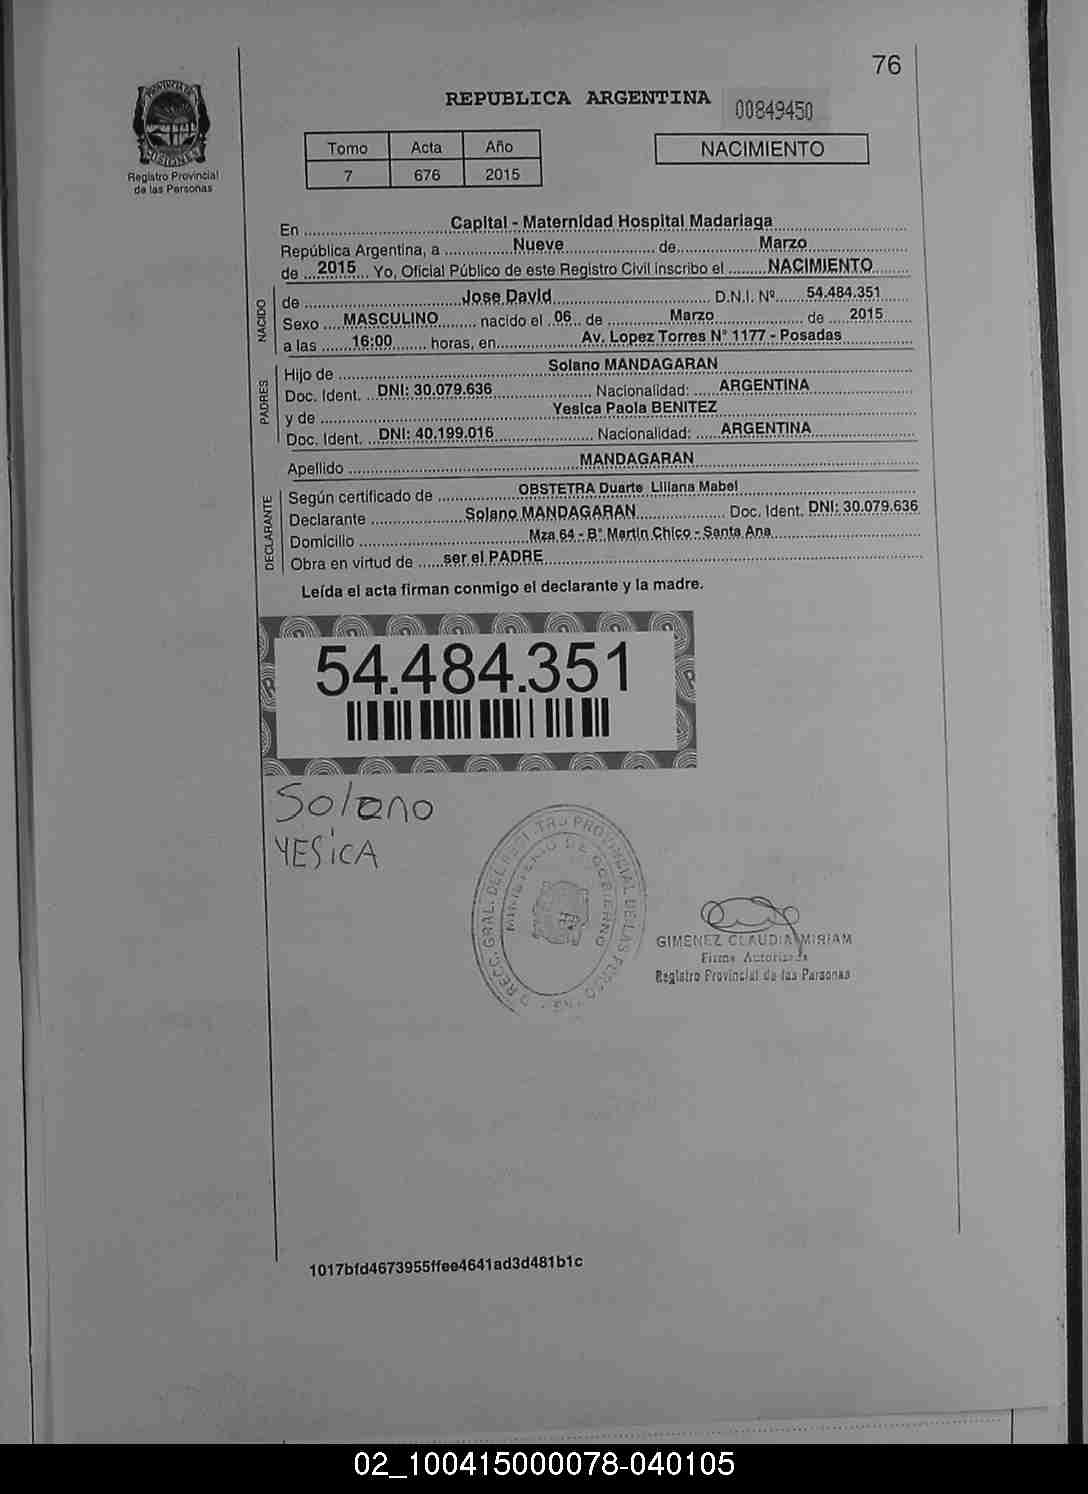 76
PROVINCIA DE
MISIONES
Registro Provincial
de las Personas
REPUBLICA ARGENTINA
00849450
Tomo Acta Año
7 676 2015
NACIMIENTO
En Capital - Maternidad Hospital Madariaga
República Argentina, a Nueve de Marzo
de 2015 Yo, Oficial Público de este Registro Civil inscribo el NACIMIENTO
NACIDO
de Jose David D.N.I. Nº 54.484.351
Sexo MASCULINO nacido el 06 de Marzo de 2015
a las 16:00 horas, en Av. Lopez Torres N° 1177 - Posadas
PADRES
Hijo de Solano MANDAGARAN
Doc. Ident. DNI: 30.079.636 Nacionalidad: ARGENTINA
y de Yesica Paola BENITEZ
Doc. Ident. DNI: 40.199.016 Nacionalidad: ARGENTINA
Apellido MANDAGARAN
DECLARANTE
Según certificado de OBSTETRA Duarte Liliana Mabel
Declarante Solano MANDAGARAN Doc. Ident. DNI: 30.079.636
Domicilio Mza 64 - B° Martin Chico - Santa Ana
Obra en virtud de ser el PADRE
Leída el acta firman conmigo el declarante y la madre.
54.484.351
Solano
YESiCA
GRAL. DEL PROVINCIAL DE LAS
MINISTERIO DE GOBIERNO
GIMENEZ CLAUDIA MIRIAM
Firma Autorizada
Registro Provincial de las Personas
1017bfd4673955ffee4641ad3d481b1c
02_100415000078-040105